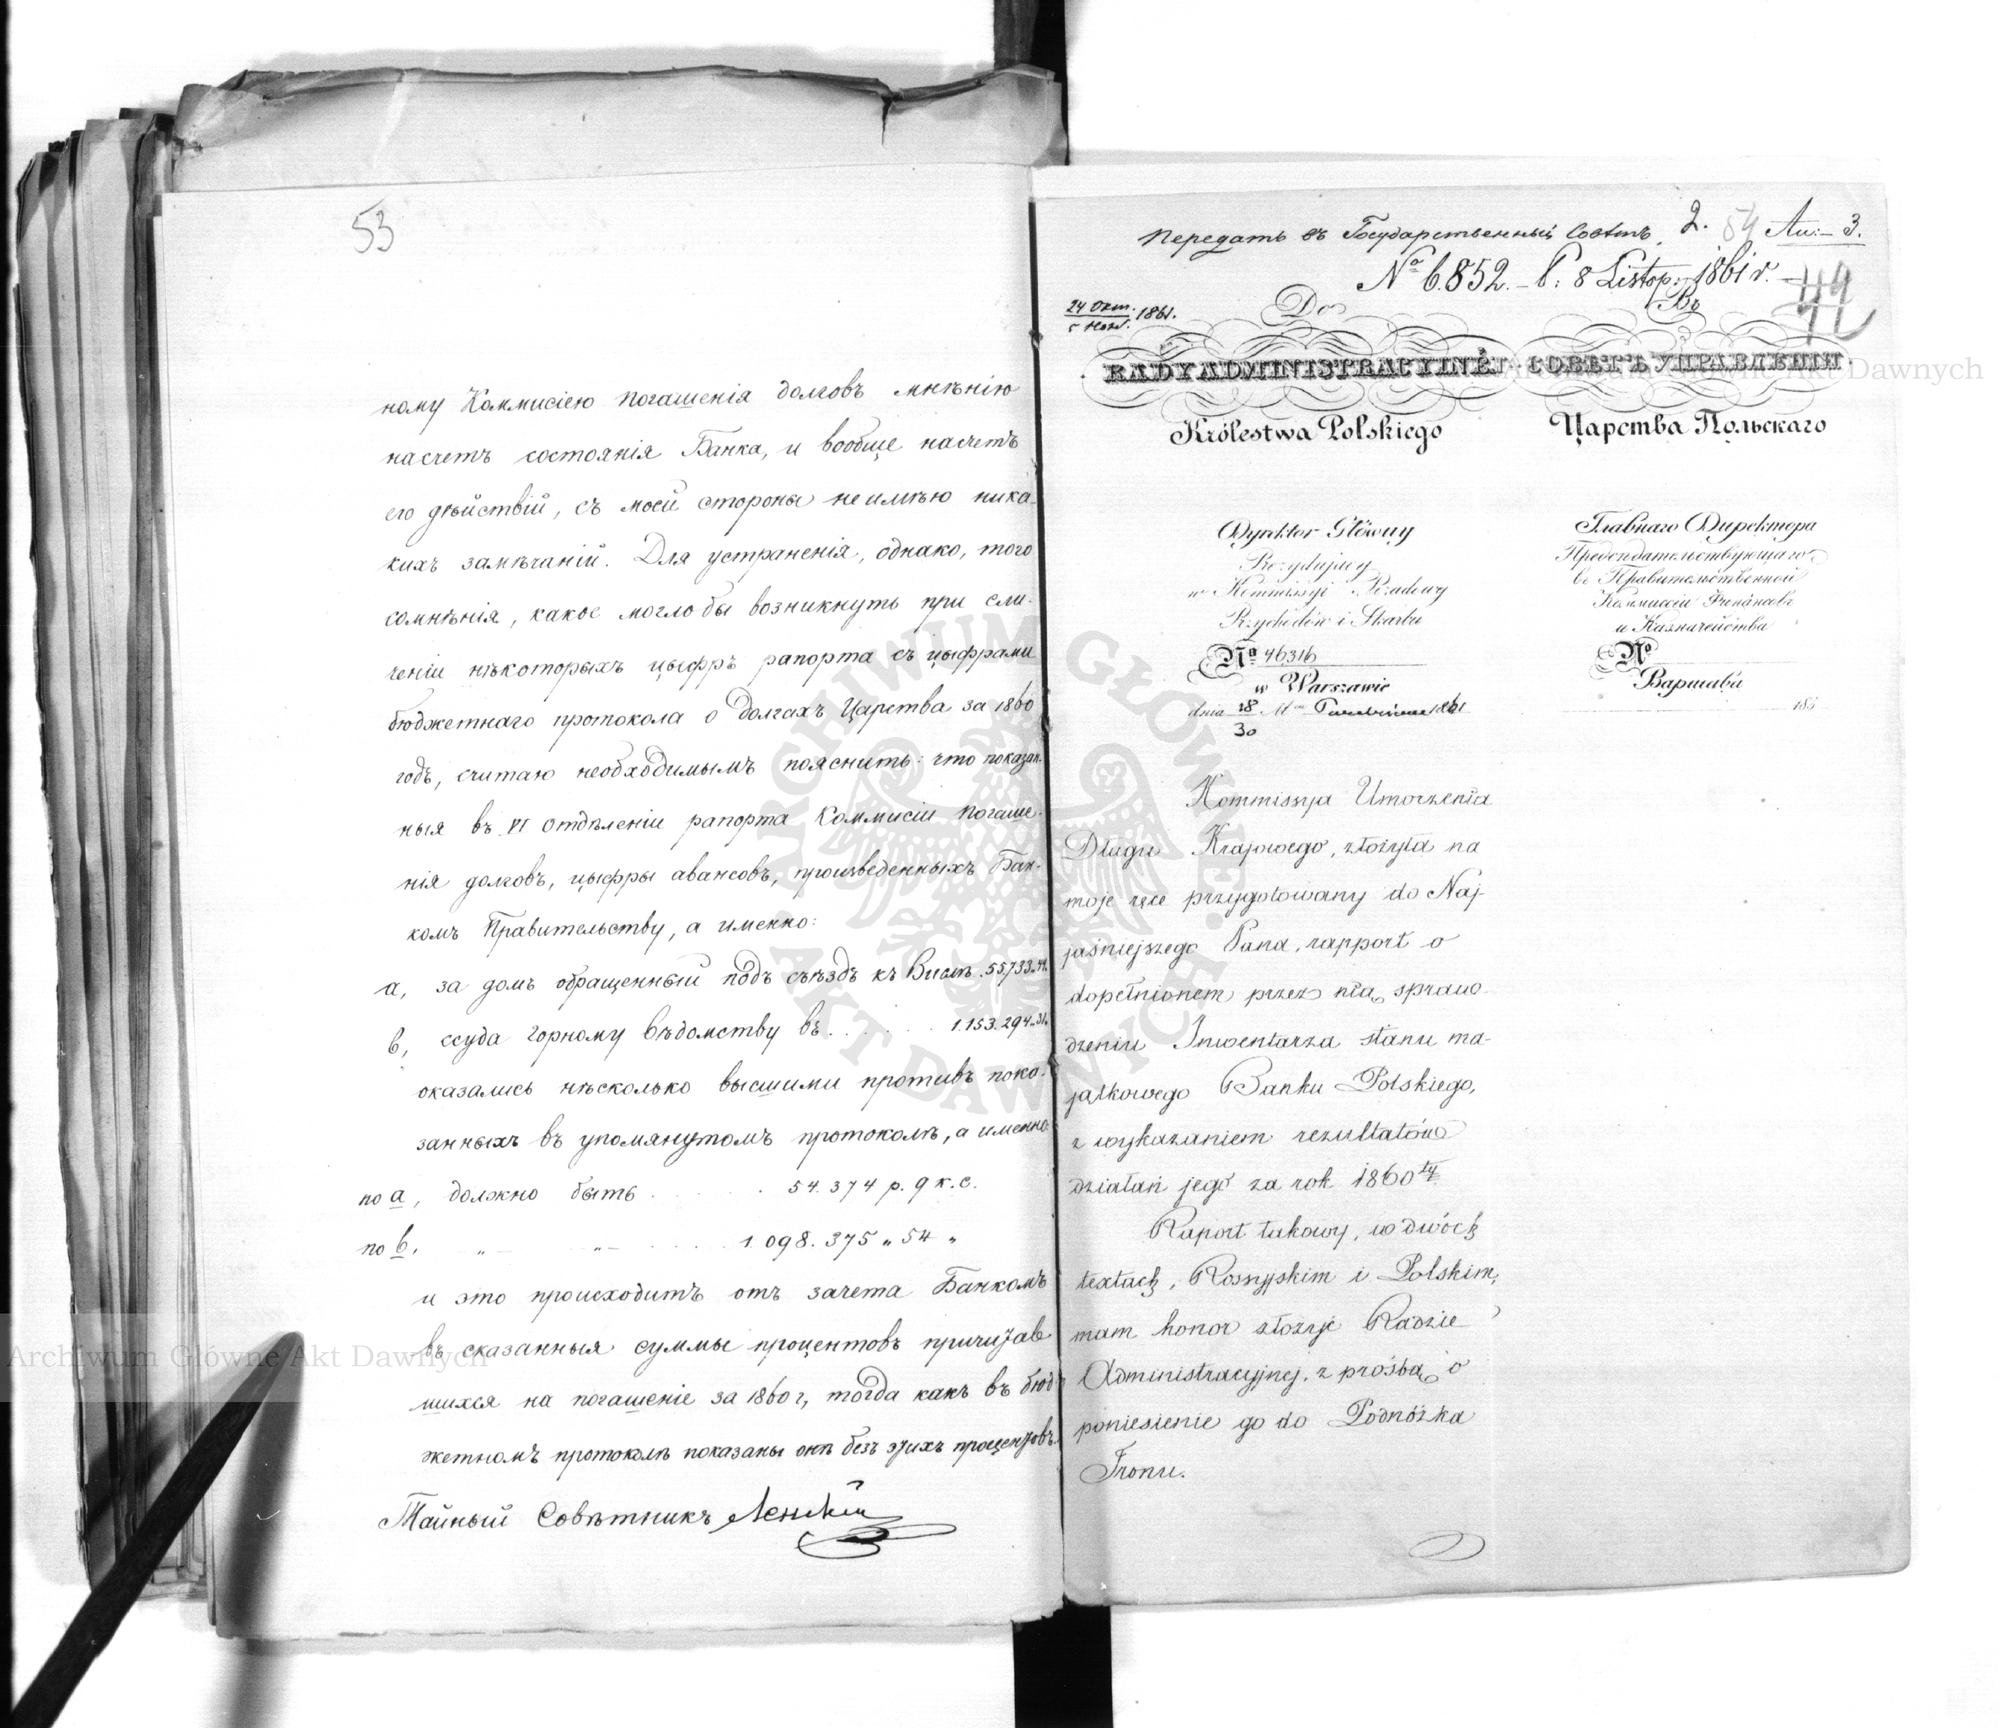 53
ному Коммисіею погашенія долговъ мнѣнію
насчетъ состоянія Банка, и вообще насчетъ
его дѣйствій, съ моей стороны не имѣю ника-
кихъ замѣчаній. Для устраненія, однако, того
сомнѣнія, какое могло бы возникнуть при сли-
ченіи нѣкоторыхъ цыфръ рапорта съ цыфрами
бюджетнаго протокола о долгахъ Царства за 1860
годъ, считаю необходимымъ пояснить: что показан-
ныя въ VI отдѣленіи рапорта Коммисіи погаше-
нія долговъ, цыфры авансовъ, произведенныхъ Бан-
комъ Правительству, а именно:
а, за домъ обращенный подъ съѣздъ къ Вислѣ. 55,733„41.
в, ссуда горному вѣдомству въ . . . . . . 1.153.294„31.
оказались нѣсколько высшими противъ пока-
занныхъ въ упомянутомъ протоколѣ, а именно
по а, должно быть . . . . 54.374 р. 9 к. с.
по в, „ — „ — . . . . 1.098.375 „ 54 „
и это происходитъ отъ зачета Банкомъ
въ сказанныя суммы процентовъ причитав
шихся на погашеніе за 1860 г, тогда какъ въ бюд
жетномъ протоколѣ показаны онѣ безъ этихъ процентовъ.
Тайный Совѣтникъ
Передать въ Государственный Совѣтъ. 2. 54 3.
№ 6.852. 8 Listop. 1861 r.
24 Окт. / 5 Нояб. 1861.
42
Do Въ
RADY ADMINISTRACYINÉJ СОВЕТЪ УПРАВЛЕНІЯ
Królestwa Polskiego Царства Польскаго
Dyrektor Główny
Prezydujący
w Kommissyi Rządowéy
Przychodów i Skarbu
№ 46316
w Warszawie
dnia 18/30 Mca Października 1861
Главнаго Директора
Предсѣдательствующаго
въ Правительственной
Коммиссіи Финансовъ
и Казначейства
№
Варшава
185
Kommissya Umorzenia
Długu Krajowego, złożyła na
moje ręce przygotowany do Naj-
jaśniejszego Pana, rapport o
dopełnionem przez nią, spraw-
dzeniu Inwentarza stanu ma-
jątkowego Banku Polskiego,
z wykazaniem rezultatów
działań jego za rok 1860ty.
Raport takowy, w dwóch
textach, Rossyjskim i Polskim,
mam honor złożyć Radzie
Administracyjnej, z prośbą o
poniesienie go do Podnóżka
Tronu.
ARCHIWUM GŁÓWNE AKT DAWNYCH
Archiwum Główne Akt Dawnych
Archiwum Główne Akt Dawnych